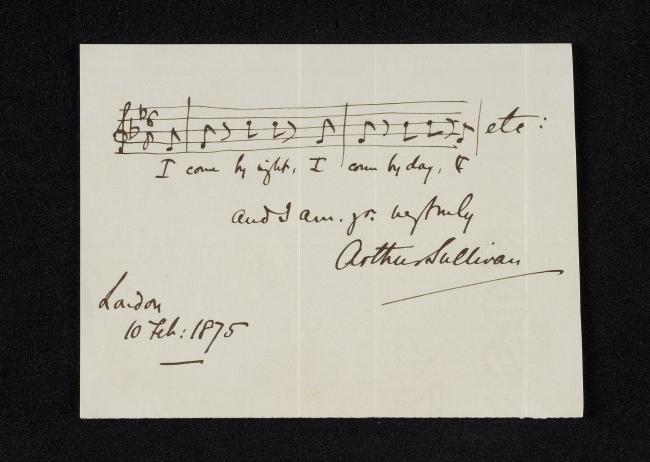 etc:
I come by night, I come by day, &
and I am. yrs. very truly
Arthur Sullivan
London
10 Feb: 1875